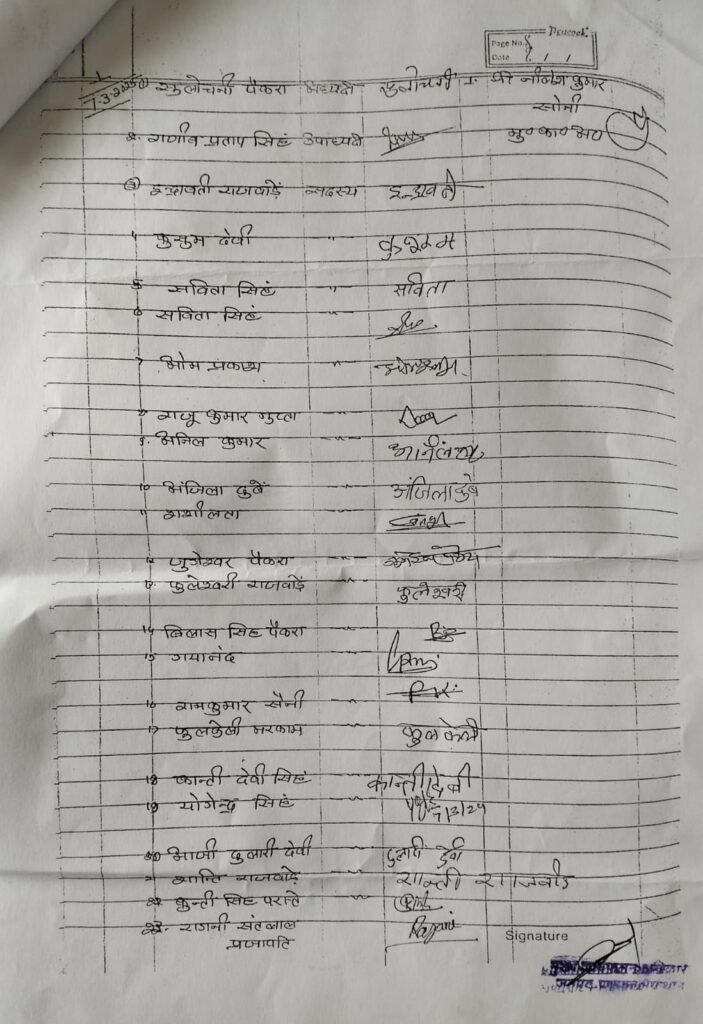 Peacock
Page No.
Date / /
7-3-2025 सुलोचनी पैकरा अध्यक्ष सुलोचनी 1. श्री नीलेश कुमार
सोनी
2. राजीव प्रताप सिंह उपाध्यक्ष मु० का० अ०
3 इन्द्रावती राजवाड़ें सदस्य इन्द्रावती
4 कुसुम देवी " कुसुम
5 सविता सिंह " सविता
6 सविता सिंह "
7 ओम प्रकाश "
8 राजू कुमार गुप्ता "
9. अनिल कुमार " अनिल
10 अंजिला दुबें " अंजिला दुबे
11 शशीलता "
12 जुगेश्वर पैकरा "
13. फुलेश्वरी राजवाड़ें " फुलेश्वरी
14 बिलास सिंह पैकरा "
15 गयानंद "
16 रामकुमार सैनी "
17 फुलकेली मरकाम " फुलकेली
18 कान्ती देवी सिंह " कान्ती देवी
19 योगेन्द्र सिंह " 7/3/24
20 दुलारी देवी दुलारी देवी
21 शान्ति राजवाड़े शान्ती राजवाड़े
22 कुन्ती सिंह परास्ते
23. रजनी संतलाल Rajani
प्रजापति
Signature